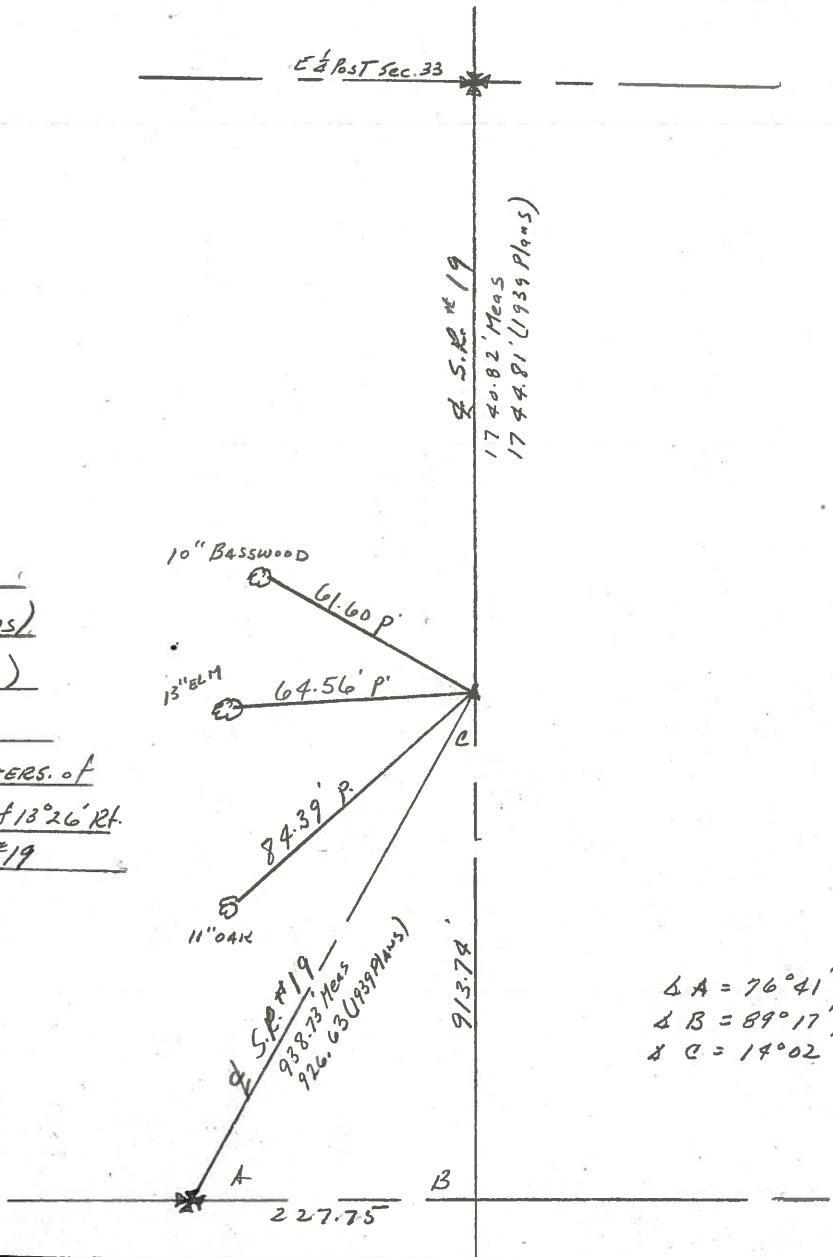 E 1/4 Post Sec. 33
℄ S.R. # 19
1740.82' Meas
1744.81' (1939 Plans)
10" BASSWOOD
61.60 P'
13" ELM
64.56' P'
C
84.39' P.
11" OAK
ERS. of
f 13°26' Rt.
#19
℄ S.R. #19
938.73' Meas
926.63 (1939 PLANS)
913.74'
∡ A = 76°41'
∡ B = 89°17'
∡ C = 14°02'
A
B
227.75